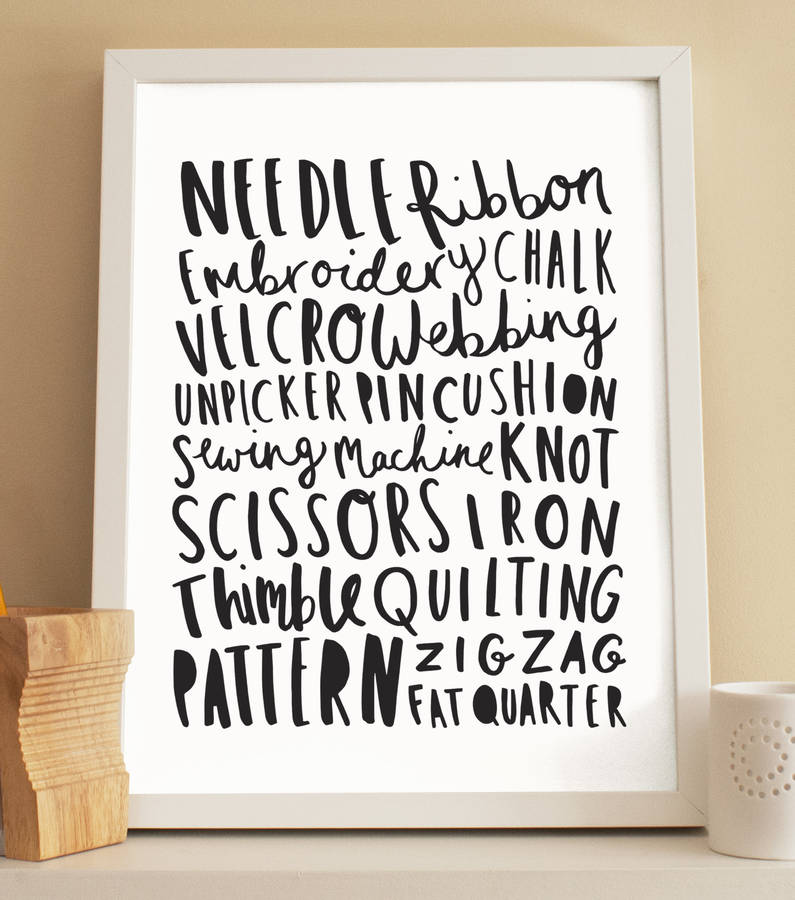 NEEDLE Ribbon
Embroidery CHALK
VELCRO Webbing
UNPICKER PIN CUSHION
Sewing Machine KNOT
SCISSORS IRON
Thimble QUILTING
PATTERN ZIGZAG
FAT QUARTER